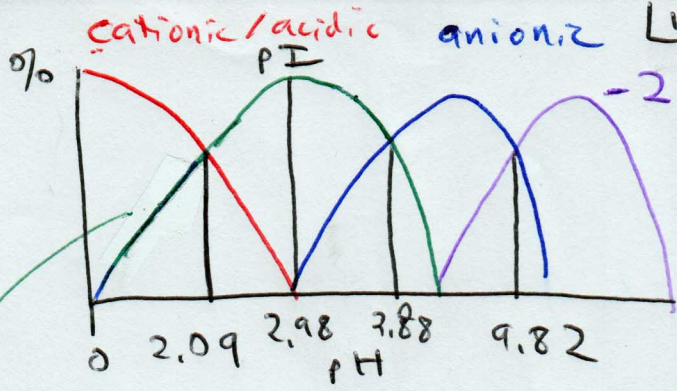 cationic/acidic anionic
% pI
-2
0 2.09 2.98 3.88 9.82
pH